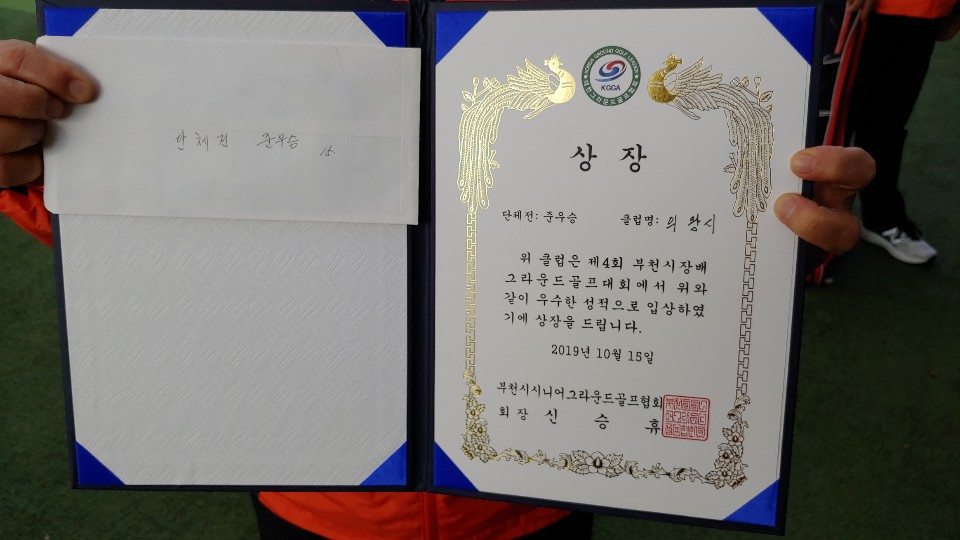 단체전 준우승
KOREA GROUND GOLF LEADER
KGGA
상장
단체전: 준우승 클럽명: 의왕시
위 클럽은 제4회 부천시장배
그라운드골프대회에서 위와
같이 우수한 성적으로 입상하였
기에 상장을 드립니다.
2019년 10월 15일
부천시시니어그라운드골프협회
회장 신 승 휴